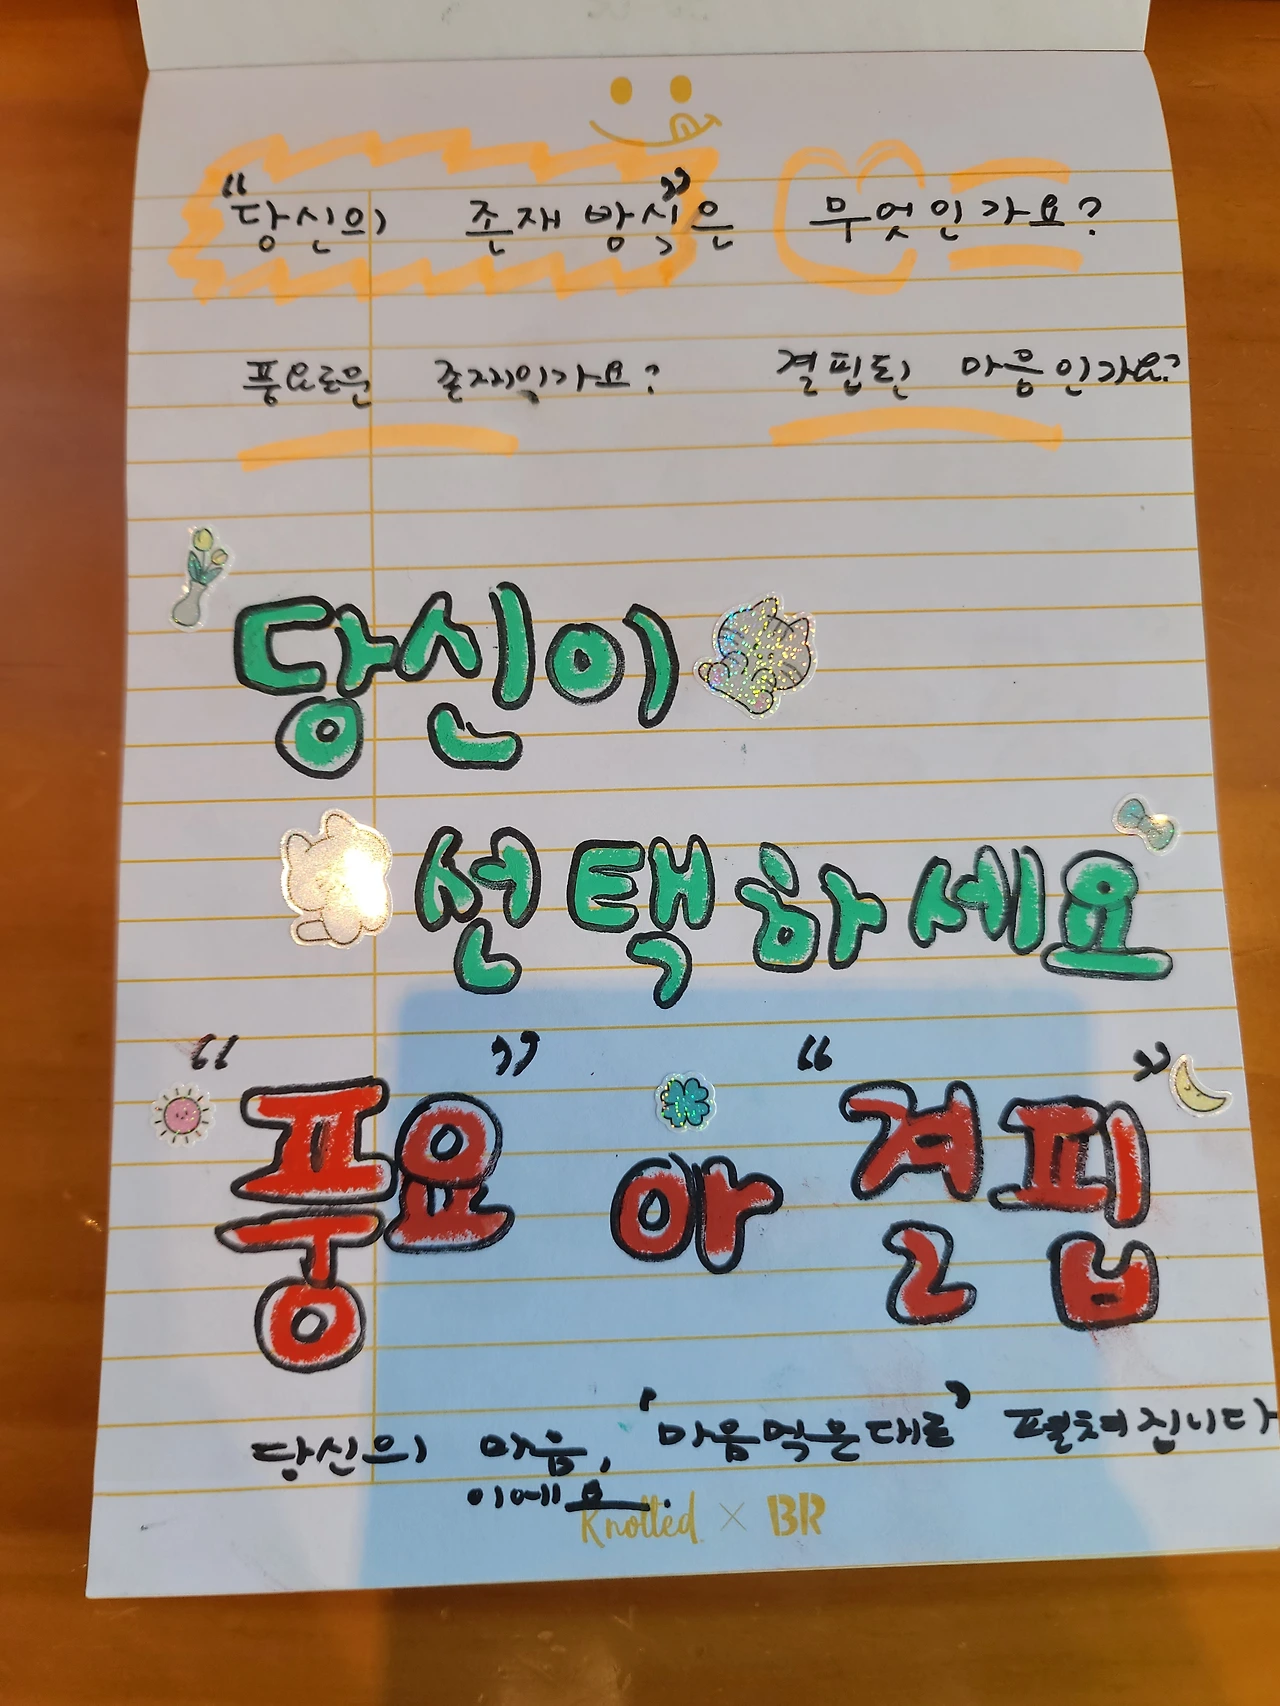 "당신의 존재 방식"은 무엇인가요?
풍요로운 존재인가요? 결핍된 마음인가요?
당신이
선택하세요
"풍요" 아 "결핍"
당신의 마음, '마음먹은대로' 펼쳐집니다
이에요.
Knotted × BR